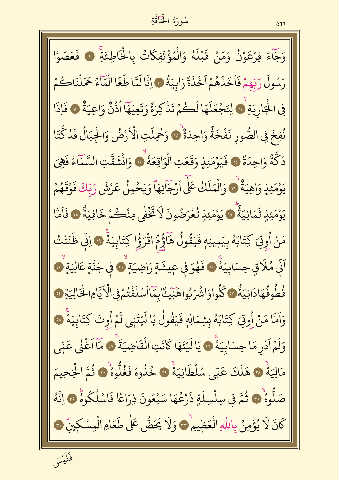 سُورَةُ الْحَاقَّةِ
٥٦٦
وَجَٓاءَ فِرْعَوْنُ وَمَنْ قَبْلَهُ وَالْمُؤْتَفِكَاتُ بِالْخَاطِئَةِۚ ﴿٩﴾ فَعَصَوْا
رَسُولَ رَبِّهِمْ فَاَخَذَهُمْ اَخْذَةً رَابِيَةً ﴿١٠﴾ اِنَّا لَمَّا طَغَا الْمَٓاءُ حَمَلْنَاكُمْ
فِي الْجَارِيَةِۙ ﴿١١﴾ لِنَجْعَلَهَا لَكُمْ تَذْكِرَةً وَتَعِيَهَٓا اُذُنٌ وَاعِيَةٌ ﴿١٢﴾ فَاِذَا
نُفِخَ فِي الصُّورِ نَفْخَةٌ وَاحِدَةٌۙ ﴿١٣﴾ وَحُمِلَتِ الْاَرْضُ وَالْجِبَالُ فَدُكَّتَا
دَكَّةً وَاحِدَةًۙ ﴿١٤﴾ فَيَوْمَئِذٍ وَقَعَتِ الْوَاقِعَةُۙ ﴿١٥﴾ وَانْشَقَّتِ السَّمَٓاءُ فَهِيَ
يَوْمَئِذٍ وَاهِيَةٌۙ ﴿١٦﴾ وَالْمَلَكُ عَلٰٓى اَرْجَٓائِهَاۜ وَيَحْمِلُ عَرْشَ رَبِّكَ فَوْقَهُمْ
يَوْمَئِذٍ ثَمَانِيَةٌۜ ﴿١٧﴾ يَوْمَئِذٍ تُعْرَضُونَ لَا تَخْفٰى مِنْكُمْ خَافِيَةٌ ﴿١٨﴾ فَاَمَّا
مَنْ اُو۫تِيَ كِتَابَهُ بِيَم۪ينِه۪ۙ فَيَقُولُ هَٓاؤُ۬مُ اقْرَؤُ۫ا كِتَابِيَهْۚ ﴿١٩﴾ اِنّ۪ي ظَنَنْتُ
اَنّ۪ي مُلَاقٍ حِسَابِيَهْۚ ﴿٢٠﴾ فَهُوَ ف۪ي ع۪يشَةٍ رَاضِيَةٍۙ ﴿٢١﴾ ف۪ي جَنَّةٍ عَالِيَةٍۙ ﴿٢٢﴾
قُطُوفُهَا دَانِيَةٌ ﴿٢٣﴾ كُلُوا وَاشْرَبُوا هَن۪ٓيـًٔا بِمَٓا اَسْلَفْتُمْ فِي الْاَيَّامِ الْخَالِيَةِ ﴿٢٤﴾
وَاَمَّا مَنْ اُو۫تِيَ كِتَابَهُ بِشِمَالِه۪ۙ فَيَقُولُ يَا لَيْتَن۪ي لَمْ اُو۫تَ كِتَابِيَهْۚ ﴿٢٥﴾
وَلَمْ اَدْرِ مَا حِسَابِيَهْۚ ﴿٢٦﴾ يَا لَيْتَهَا كَانَتِ الْقَاضِيَةَۚ ﴿٢٧﴾ مَٓا اَغْنٰى عَنّ۪ي
مَالِيَهْۚ ﴿٢٨﴾ هَلَكَ عَنّ۪ي سُلْطَانِيَهْۚ ﴿٢٩﴾ خُذُوهُ فَغُلُّوهُۙ ﴿٣٠﴾ ثُمَّ الْجَح۪يمَ
صَلُّوهُۙ ﴿٣١﴾ ثُمَّ ف۪ي سِلْسِلَةٍ ذَرْعُهَا سَبْعُونَ ذِرَاعًا فَاسْلُكُوهُۜ ﴿٣٢﴾ اِنَّهُ
كَانَ لَا يُؤْمِنُ بِاللّٰهِ الْعَظ۪يمِۙ ﴿٣٣﴾ وَلَا يَحُضُّ عَلٰى طَعَامِ الْمِسْك۪ينِۜ ﴿٣٤﴾
فَلَيْسَ